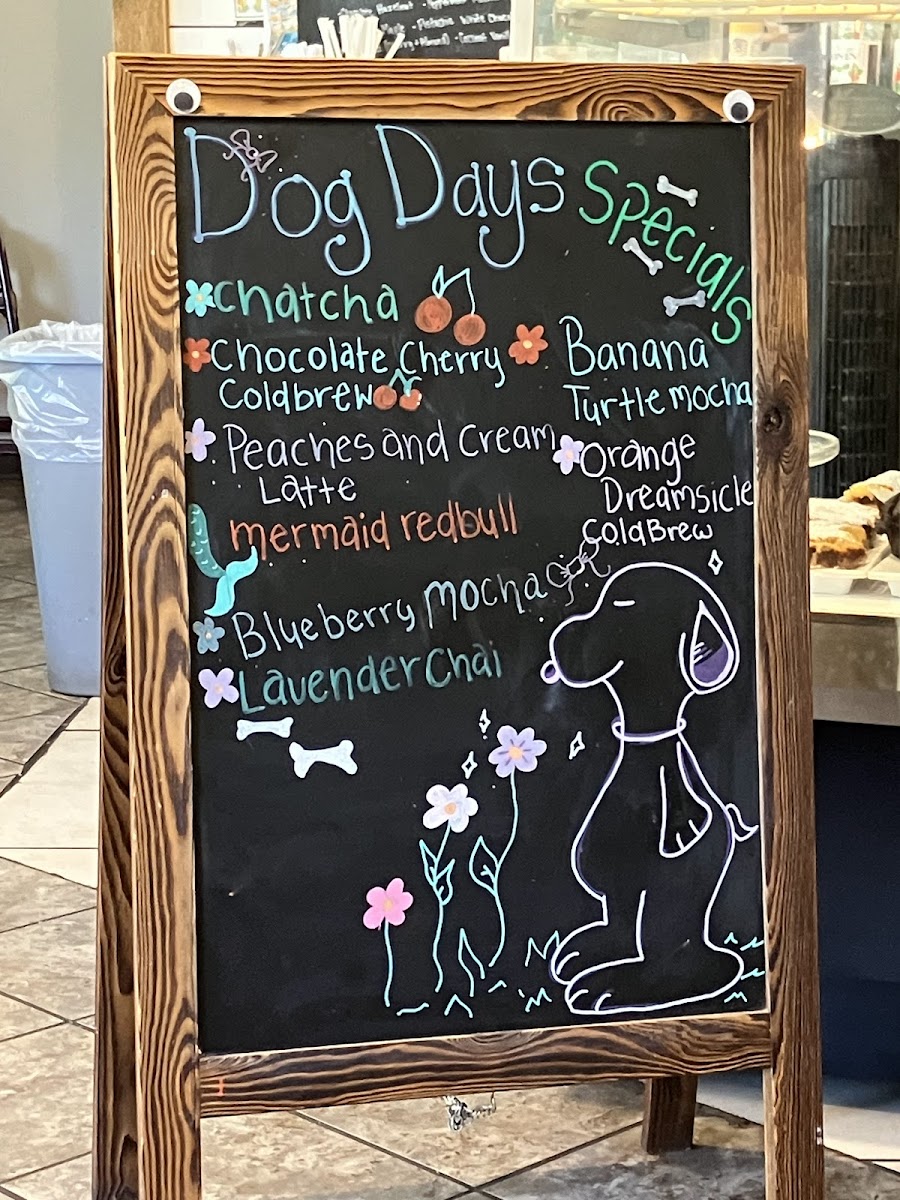 Dog Days Specials
chatcha
Chocolate Cherry
Coldbrew
Peaches and Cream
Latte
mermaid redbull
Blueberry Mocha
Lavender Chai
Banana
Turtle mocha
Orange
Dreamsicle
ColdBrew